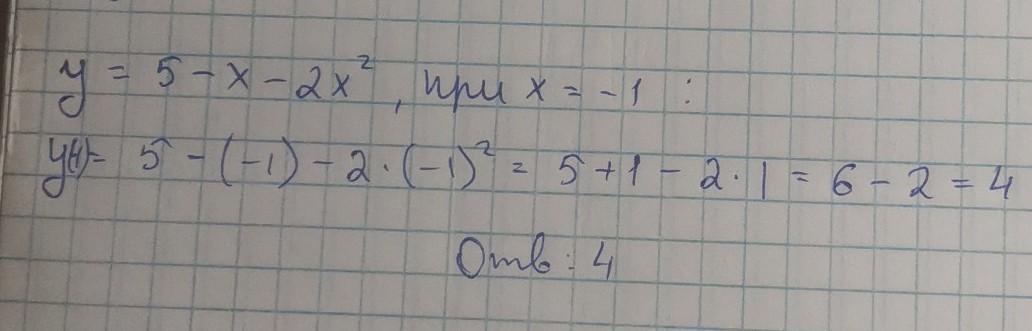 y = 5 - x - 2x², при x = -1 :
y(-1)= 5 - (-1) - 2·(-1)² = 5 + 1 - 2·1 = 6 - 2 = 4
Отв: 4